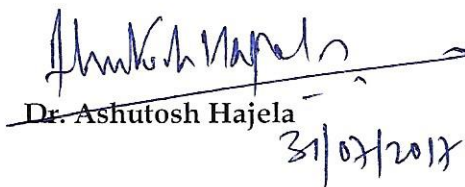 Ashutosh Hajela
Dr. Ashutosh Hajela
31/07/2017